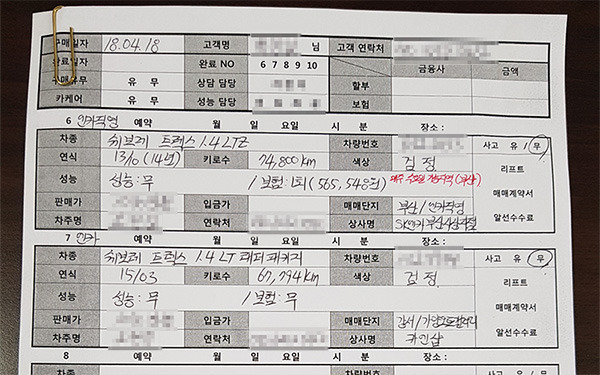 구매일자 18.04.18 고객명 님 고객 연락처
완료일자 완료 NO 6 7 8 9 10 금융사 금액
구매유무 유 무 상담 담당 할부
카케어 유 무 성능 담당 보험
6 엔카직영 예약 월 일 요일 시 분 장소 :
차종 쉐보레 트랙스 1.4 LTZ 차량번호 사고 유 / 무
연식 13/10 (14년) 키로수 74,800km 색상 검정 리프트
성능 성능:무 /보험:1회(565,548원) 매매계약서
판매가 입금가 매매단지 부산/엔카직영 알선수수료
차주명 연락처 상사명 SK엔카 부산사상직영점
7 엔카 예약 월 일 요일 시 분 장소 :
차종 쉐보레 트랙스 1.4 LT 레더패키지 차량번호 사고 유 / 무
연식 15/03 키로수 67,794km 색상 검정 리프트
성능 성능:무 /보험:무 매매계약서
판매가 입금가 매매단지 알선수수료
차주명 연락처 상사명
8 예약 월 일 요일 시 분 장소 :
차종 차량번호